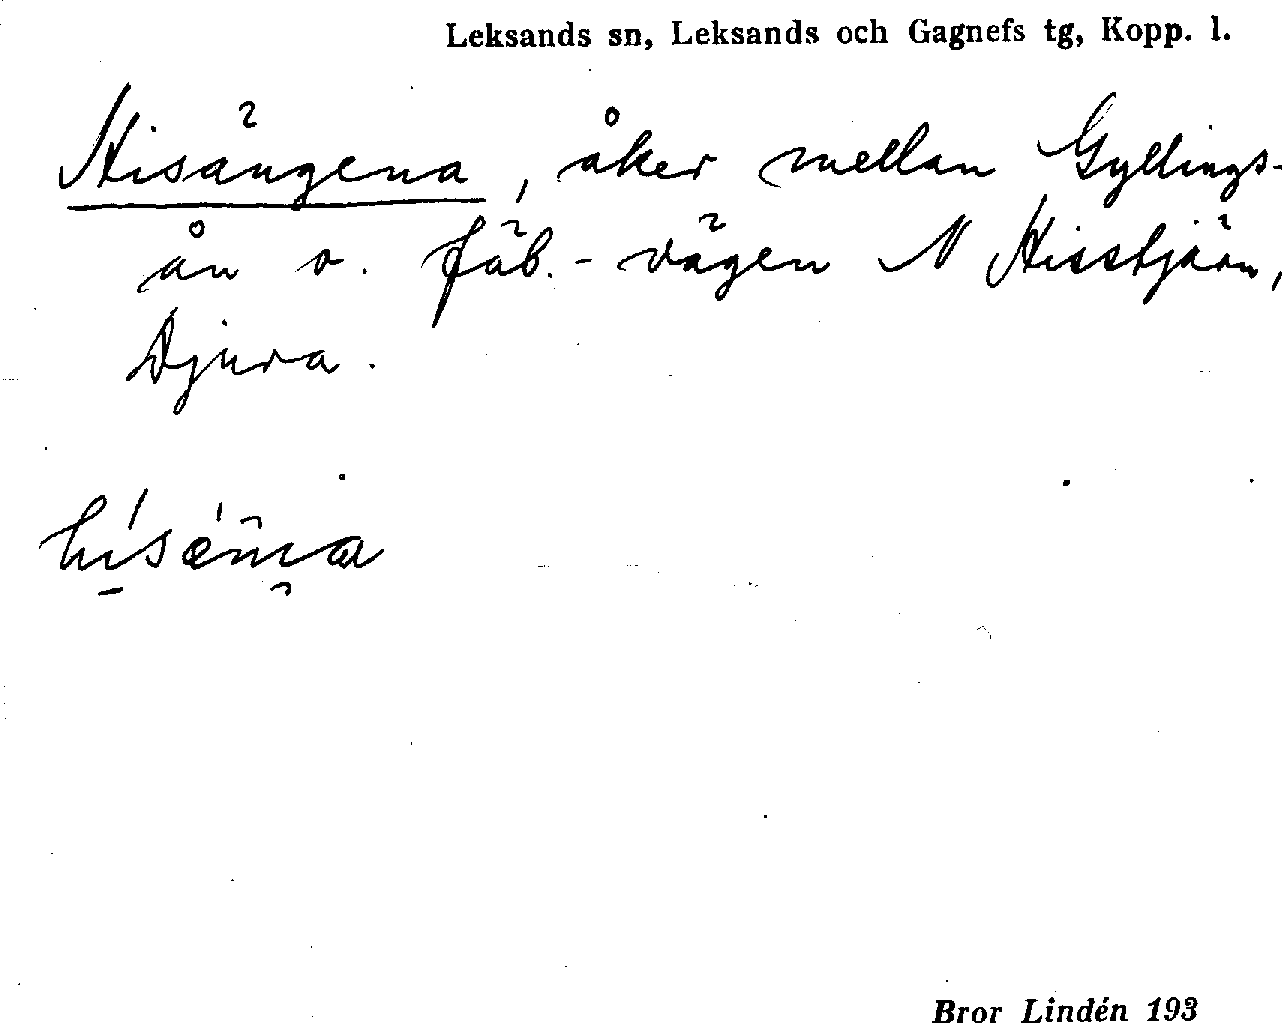 Leksands sn, Leksands och Gagnefs tg, Kopp. l.
Hisängena, åker mellan Gyllings-
ån o. fäb.-vägen N Hisstjärn,
Djura.
Bror Lindén 193